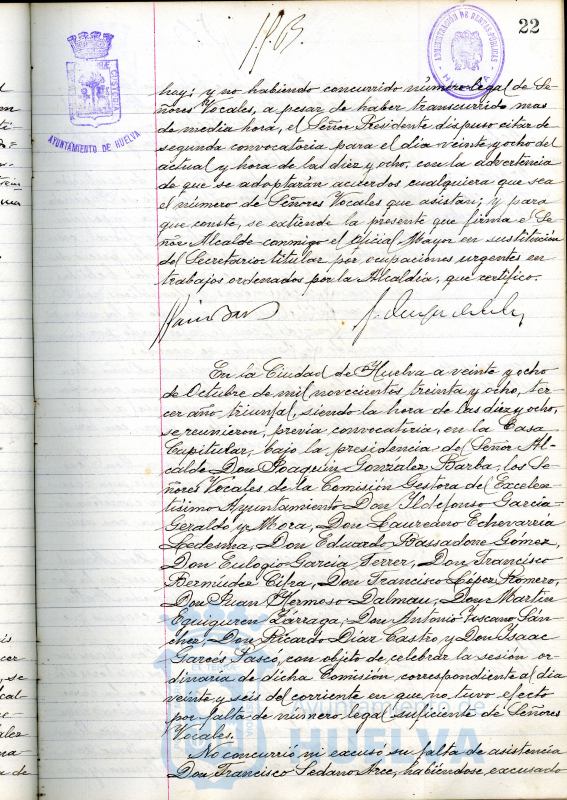 22
ADMINISTRACIÓN DE RENTAS PÚBLICAS
HUELVA
AYUNTAMIENTO DE HUELVA
hay: y no habiendo concurrido número legal de Se-
ñores Vocales, a pesar de haber transcurrido mas
de media hora, el Señor Presidente dispuso citar de
segunda convocatoria para el día veinte y ocho del
actual y hora de las diez y ocho, con la advertencia
de que se adoptarán acuerdos cualquiera que sea
el número de Señores Vocales que asistan; y para
que conste, se extiende la presente que firma el Se-
ñor Alcalde conmigo el Oficial Mayor en sustitución
del Secretario titular por ocupaciones urgentes en
trabajos ordenados por la Alcaldía, que certifico.
En la Ciudad de Huelva a veinte y ocho
de Octubre de mil novecientos treinta y ocho, ter-
cer año triunfal, siendo la hora de las diez y ocho,
se reunieron, previa convocatoria, en la Casa
Capitular, bajo la presidencia del Señor Al-
calde Don Joaquín González Barba, los Se-
ñores Vocales de la Comisión Gestora del Excelen-
tísimo Ayuntamiento Don Ildefonso García-
Geraldo y Mora, Don Laureano Echevarria
Ledesma, Don Eduardo Bassadone Gómez,
Don Eulogio Garcia Ferrer, Don Francisco
Bermúdez Cifra, Don Francisco López Romero,
Don Juan Hermoso Dalmau, Don Martin
Eguiguren Zárraga, Don Antonio Toscano Sán-
chez, Don Ricardo Díaz Castro y Don Isaac
Garcés Pascó, con objeto de celebrar la sesión or-
dinaria de dicha Comisión correspondiente al día
veinte y seis del corriente en que no tuvo efecto
por falta de número legal suficiente de Señores
Vocales.
No concurrió ni excusó su falta de asistencia
Don Francisco Sedano Arce, habiéndose excusado
Ayuntamiento de
HUELVA